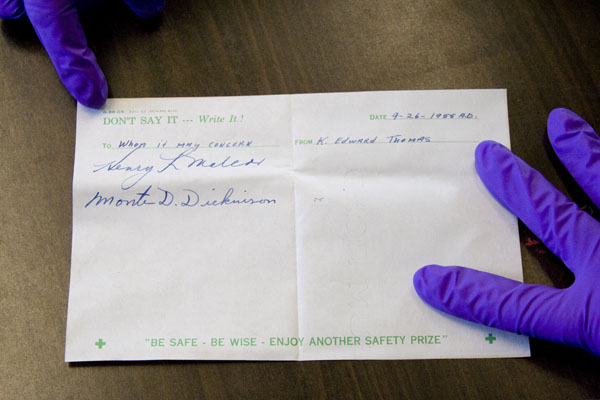 DON'T SAY IT --- Write It!
DATE 9-26-1955 A.D.
TO Whom it may concern
FROM K. Edward Thomas
Henry L
Monte D. Dickinison
"BE SAFE - BE WISE - ENJOY ANOTHER SAFETY PRIZE"